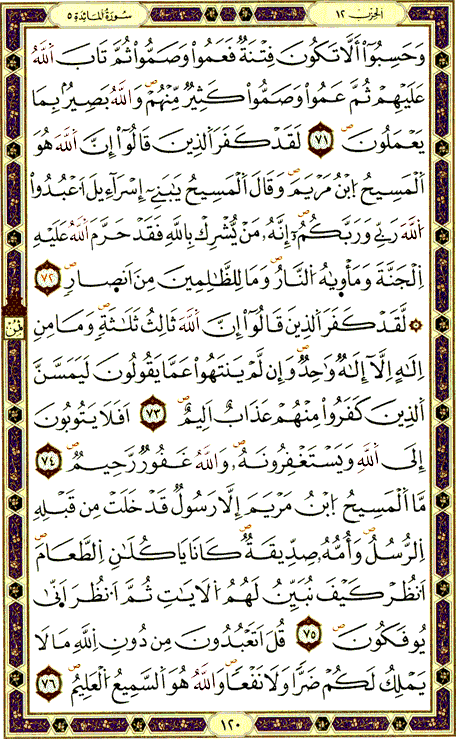 الحِزب ١٢
سُورَةُ المَائدَة ٥
وَحَسِبُوٓاْ أَلَّا تَكُونَ فِتْنَةٌ فَعَمُواْ وَصَمُّواْ ثُمَّ تَابَ اَللَّهُ
عَلَيْهِمْ ثُمَّ عَمُواْ وَصَمُّواْ كَثِيرٌ مِّنْهُمْ وَاللَّهُ بَصِيرٌۢ بِمَا
يَعْمَلُونَ ٧١ لَقَدْ كَفَرَ اَلذِينَ قَالُوٓاْ إِنَّ اَللَّهَ هُوَ
اَلْمَسِيحُ اُبْنُ مَرْيَمَ وَقَالَ اَلْمَسِيحُ يَٰبَنِےٓ إِسْرَآءِيلَ اَعْبُدُواْ
اُللَّهَ رَبِّے وَرَبَّكُمُۥٓ إِنَّهُۥ مَنْ يُّشْرِكْ بِاللَّهِ فَقَدْ حَرَّمَ اَللَّهُ عَلَيْهِ
اِلْجَنَّةَ وَمَأْوٜيٰهُ اُلنَّارُ وَمَا لِلظَّٰلِمِينَ مِنَ اَنصٜارٍ ٧٢
۞ لَّقَدْ كَفَرَ اَلذِينَ قَالُوٓاْ إِنَّ اَللَّهَ ثَالِثُ ثَلَٰثَةٍ وَمَا مِنِ
اِلَٰهٍ اِلَّآ إِلَٰهٌ وَٰحِدٌ وَإِن لَّمْ يَنتَهُواْ عَمَّا يَقُولُونَ لَيَمَسَّنَّ
اَلذِينَ كَفَرُواْ مِنْهُمْ عَذَابٌ اَلِيمٌ ٧٣ اَفَلَا يَتُوبُونَ
إِلَى اَللَّهِ وَيَسْتَغْفِرُونَهُۥ وَاللَّهُ غَفُورٌ رَّحِيمٌ ٧٤
مَّا اَلْمَسِيحُ اُبْنُ مَرْيَمَ إِلَّا رَسُولٌ قَدْ خَلَتْ مِن قَبْلِهِ
اِلرُّسُلُ وَأُمُّهُۥ صِدِّيقَةٌ كَانَا يَاكُلَٰنِ اِلطَّعَامَ
اَنظُرْ كَيْفَ نُبَيِّنُ لَهُمُ اُلَايَٰتِ ثُمَّ اَنظُرَ اَنّٜيٰ
يُوفَكُونَ ٧٥ قُلَ اَتَعْبُدُونَ مِن دُونِ اِللَّهِ مَا لَا
يَمْلِكُ لَكُمْ ضَرّاً وَلَا نَفْعاً وَاللَّهُ هُوَ اَلسَّمِيعُ اُلْعَلِيمُ ٧٦
١٢٠